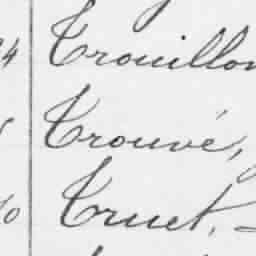 Trouillon
Trouvé,
Truet.